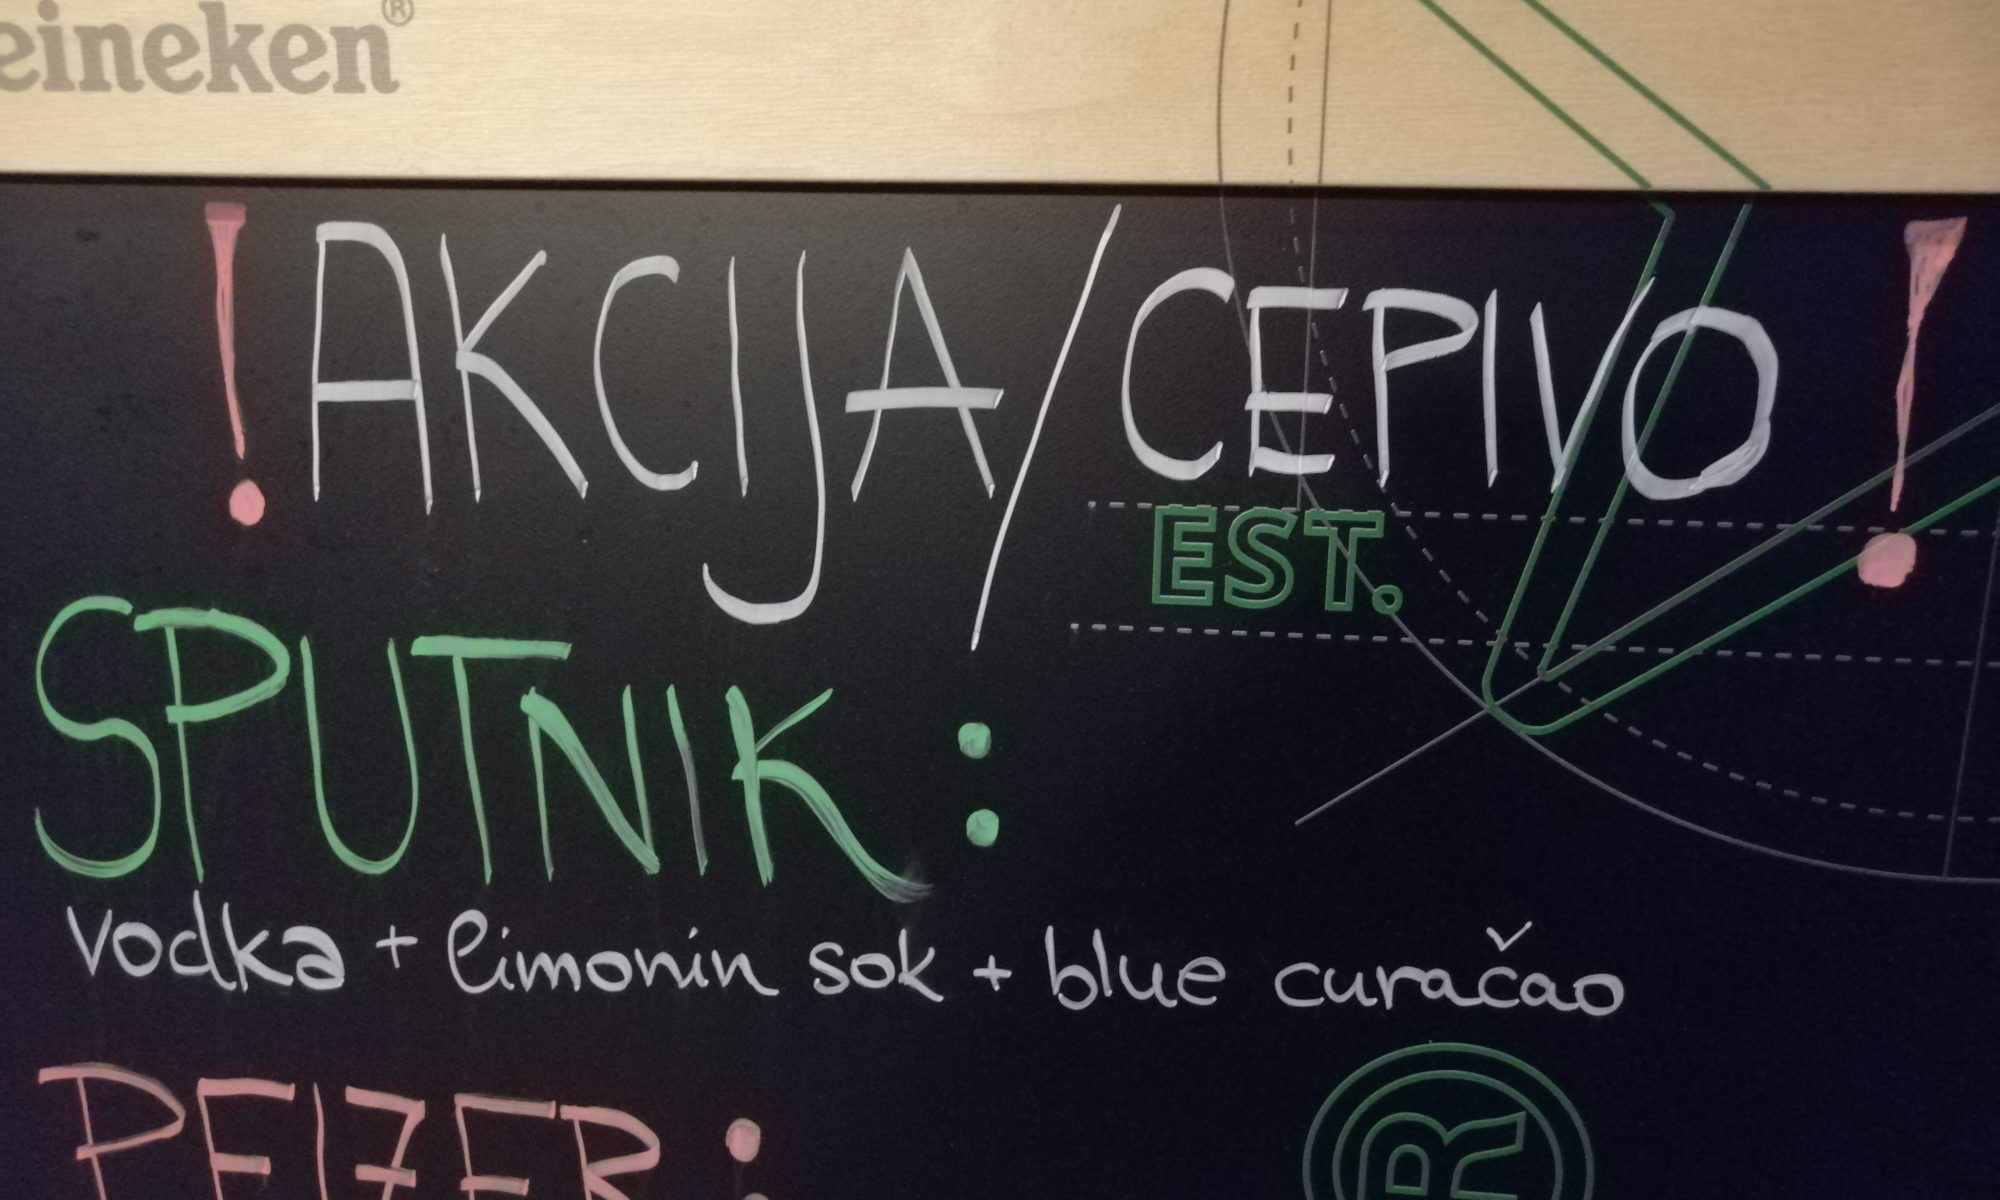 eineken®
! AKCIJA/CEPIVO !
EST.
SPUTNIK :
vodka + limonin sok + blue curačao
PFIZER :
R